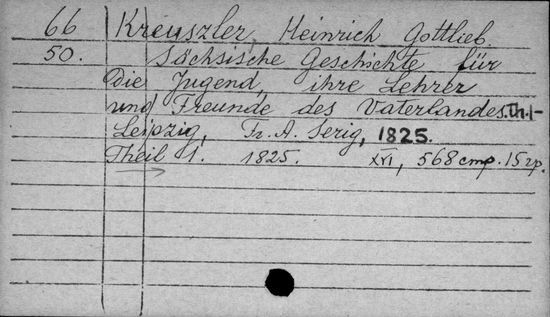 66 Kreuszler, Heinrich Gottlieb.
50. Sächsische Geschichte für
die Jugend, ihre Lehrer
und Freunde des Vaterlandes. Th. 1-
Leipzig, Fr. A. Serig, 1825.
Theil 1. 1825. XVI, 568 стр. 15 гр.